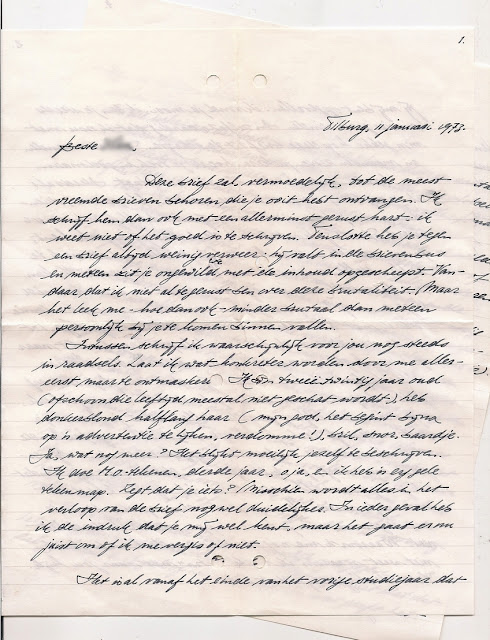 1.
Tilburg, 11 januari 1973.
Beste
Deze brief zal vermoedelijk, tot de meest
vreemde brieven behoren, die je ooit hebt ontvangen. Ik
schrijf hem dan ook met een allerminst gerust hart: ik
weet niet of het goed is te schrijven. Tenslotte heb je tegen
een brief altijd weinig verweer: hij valt in de brievenbus
en meteen zit je ongewild met de inhoud opgescheept. Van-
daar dat ik niet al te gerust ben over deze brutaliteit. Maar
het leek me - hoe dan ook - minder brutaal dan meteen
persoonlijk bij je te komen binnen vallen.
Intussen schrijf ik waarschijnlijk voor jou nog steeds
in raadsels. Laat ik wat konkreter worden door me aller-
eerst maar te ontmaskeren. Ik ben tweeëntwintig jaar oud
(ofschoon die leeftijd meestal niet geschat wordt), heb
donkerblond halflang haar (mijn god, het begint bijna
op 'n advertentie te lijken, verdomme!), bril, snor, baardje.
Ja, wat nog meer? Het blijft moeilijk jezelf te beschrijven.
Ik doe M.O.-tekenen, derde jaar, o ja, en ik heb 'n erg gele
tekenmap. Zegt dat je iets? Misschien wordt alles in het
verloop van de brief nog wel duidelijker. In ieder geval heb
ik de indruk dat je mij wel kent, maar het gaat erom
juist om of ik me vergis of niet.
Het is al vanaf het einde van het vorige studiejaar dat